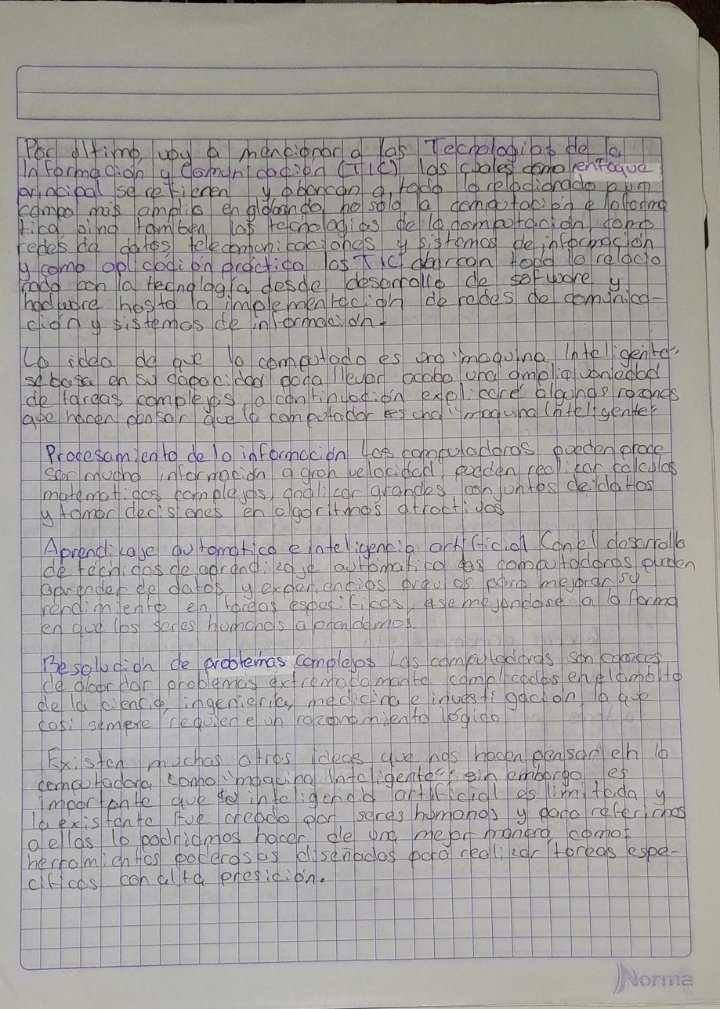 Por ultimo, voy a mencionar a las Tecnologias de la
Informacion y Comunicación (TIC), las cuales como enfoque
principal se refieren y abarcan a todo lo relacionado a un
campo más amplio englobando no solo a computación e informa
tica sino tambien las tecnologias de la computación, como
redes de datos telecomunicaciones y sistemas de información
y como aplicación práctica las TIC abarcan todo lo relacio
nado con la tecnologia desde desarrollo de sofware y
hadware hasta la implementación de redes de comunica-
ción y sistemas de información.
La idea de que la computado es una "maquina Inteligente",
se basa en su capacidad para llevar acabo una amplia variedad
de tareas complejas, a continuación explicaré algunas razones
que hacen pensar que la computador es una "maquina inteligente"
Procesamiento de la información Las computadoras pueden proce
sar mucha información a gran velocidad, pueden realizar calculos
matematicos complejos, analizar grandes conjuntos de datos
y tomar decisiones en algoritmos
Aprendizaje automatico e inteligencia artificial Con el desarrollo
de technicas de aprendizaje automatico las computadoras pueden
aprender de datos y experiencias previas para mejorar su
rendimiento en tareas especificas, asemejandose a la forma
en que los seres humanos aprendemos
Resolución de problemas complejos Las computadoras son capaces
de abordar problemas extremadamente complicados en el ambito
de la ciencia, ingenieria, medicina e investigación, lo que
casi siempre requiere un razonamiento lógico
Existen muchas otras ideas que nos hacen pensar en la
computadora como "maquina Inteligente", sin embargo, es
importante que su inteligencia artificial es limitada y
la existente fue creado por seres humanos y para referirnos
a ellas lo podriamos hacer de una mejor manera como:
herramientas poderosas diseñadas para realizar tareas espe-
cificas con alta presición.
Norma